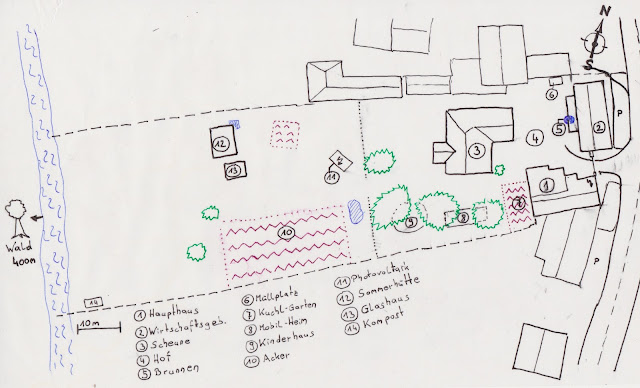 N
S
6
P
12
5
2
4
13
11
3
1
7
Wald
400m
10
9
8
P
14
10m
1 Haupthaus
2 Wirtschaftsgeb.
3 Scheune
4 Hof
5 Brunnen
6 Müllplatz
7 Kuchl-Garten
8 Mobil-Heim
9 Kinderhaus
10 Acker
11 Photovoltaik
12 Sommerhütte
13 Glashaus
14 Kompost